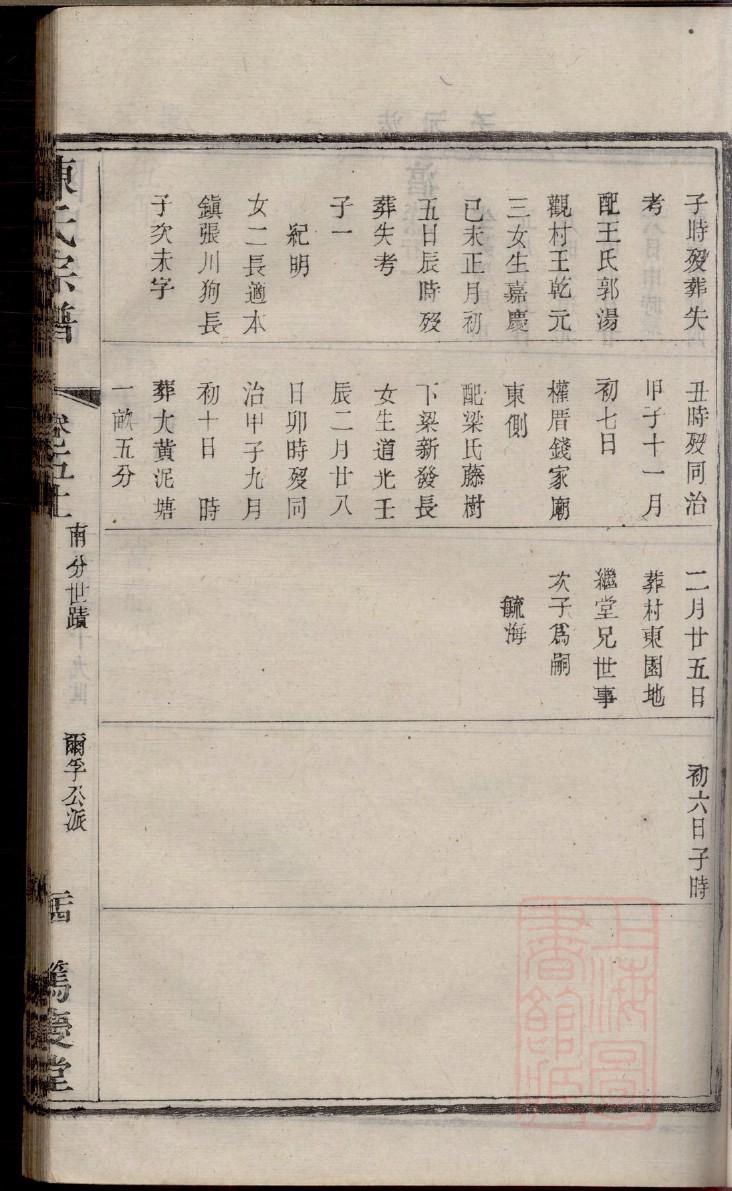 子時歿葬失
考
配王氏郭湯
觀村王乾元
三女生嘉慶
己未正月初
五日辰時歿
葬失考
子一
紀明
女二長適本
鎮張川狗長
子次未字
丑時歿同治
甲子十一月
初七日
權厝錢家廟
東側
配梁氏藤樹
下梁新發長
女生道光壬
辰二月廿八
日卯時歿同
治甲子九月
初十日 時
葬大黃泥塘
一畝五分
二月廿五日
葬村東園地
繼堂兄世事
次子爲嗣
毓海
初六日子時
陳氏宗譜
卷之五上
南分世蹟
爾孚公派
篤慶堂
上海圖
書館藏